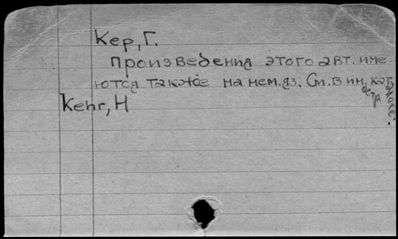 Кер, Г.
Произведения этого авт. име-
ются также на нем. яз. См. в ин. кат.
Kehr, H